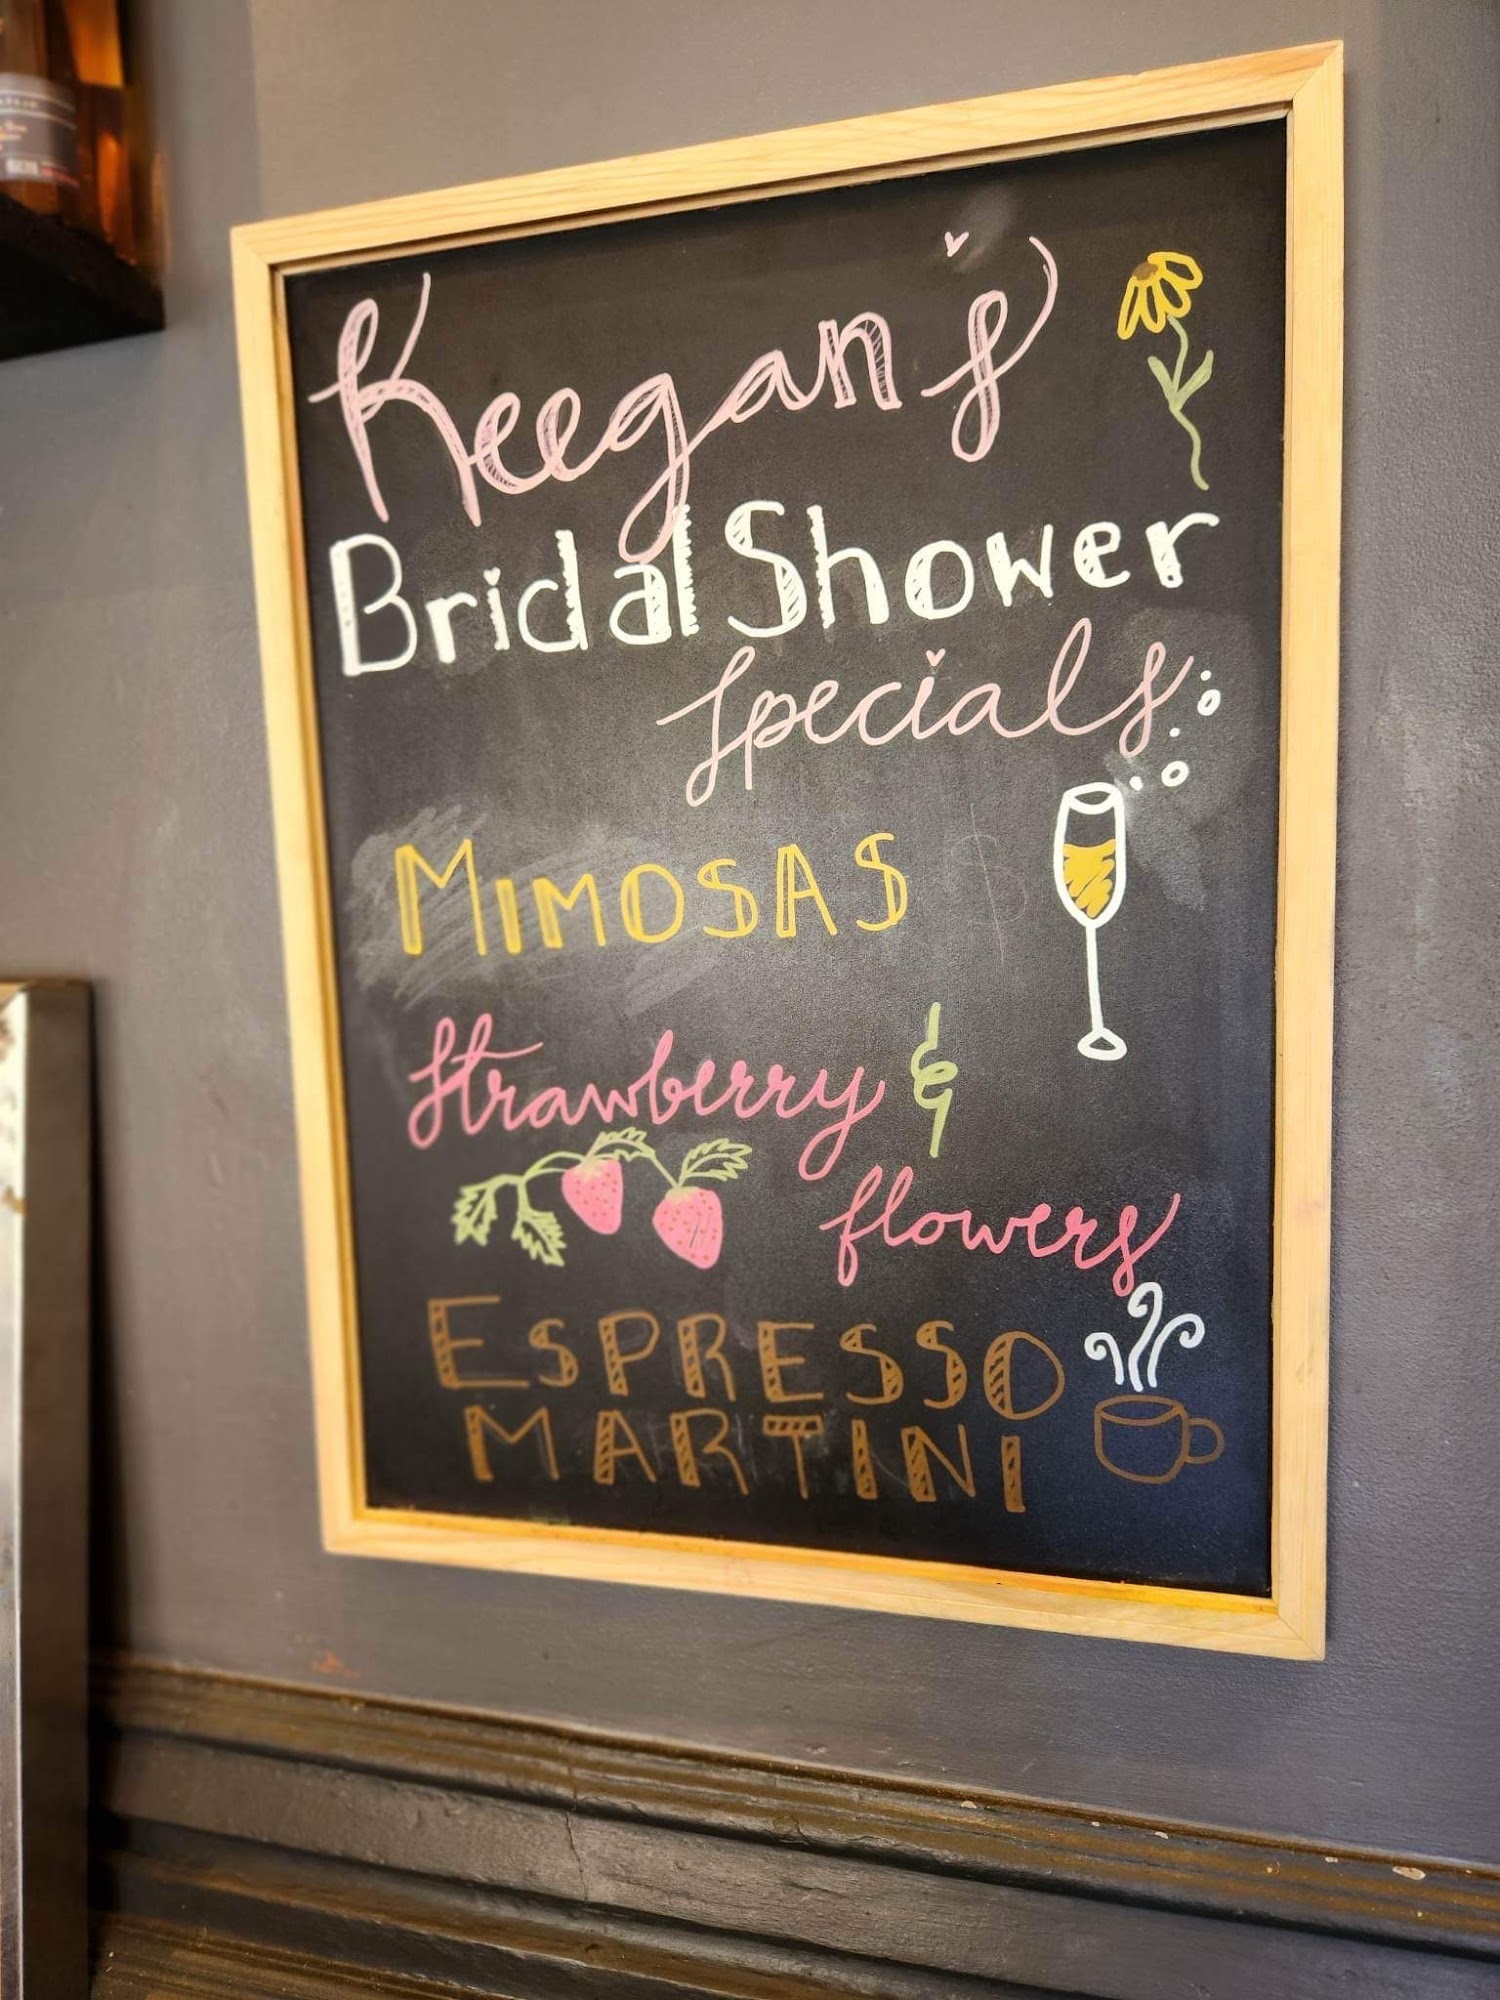 Keegan's
Bridal Shower
Specials
MIMOSAS
Strawberry &
flowers
ESPRESSO
MARTINI